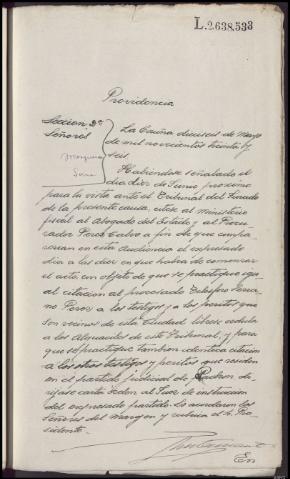 L.2.638.533
Providencia
Sección 2ª
Señores
La Coruña dieciseis de Mayo
de mil novecientos treinta y
seis.
Habiéndose señalado el
dia diez de Junio proximo
para la vista ante el Tribunal del Jurado
de la presente causa, citese al Ministerio
fiscal al Abogado del Estado, al Procu-
rador Perez Calvo a fin de que compa-
rezcan en esta Audiencia el expresado
dia a las diez en que habra de comenzar
el acto con objeto de que se practique igu-
al citacion al procesado
no Perez a los testigos y a los peritos que
son vecinos de esta ciudad librese cedula
a los Alguaciles de este Tribunal, y para
que se practique tambien identica citacion
a los otros testigos y peritos que residen
en el partido judicial de Padron di-
rijase carta orden al Juez de instruccion
del expresado partido. Lo acordaron los
Señores del margen y rubrica el Sr. Pre-
sidente.
En